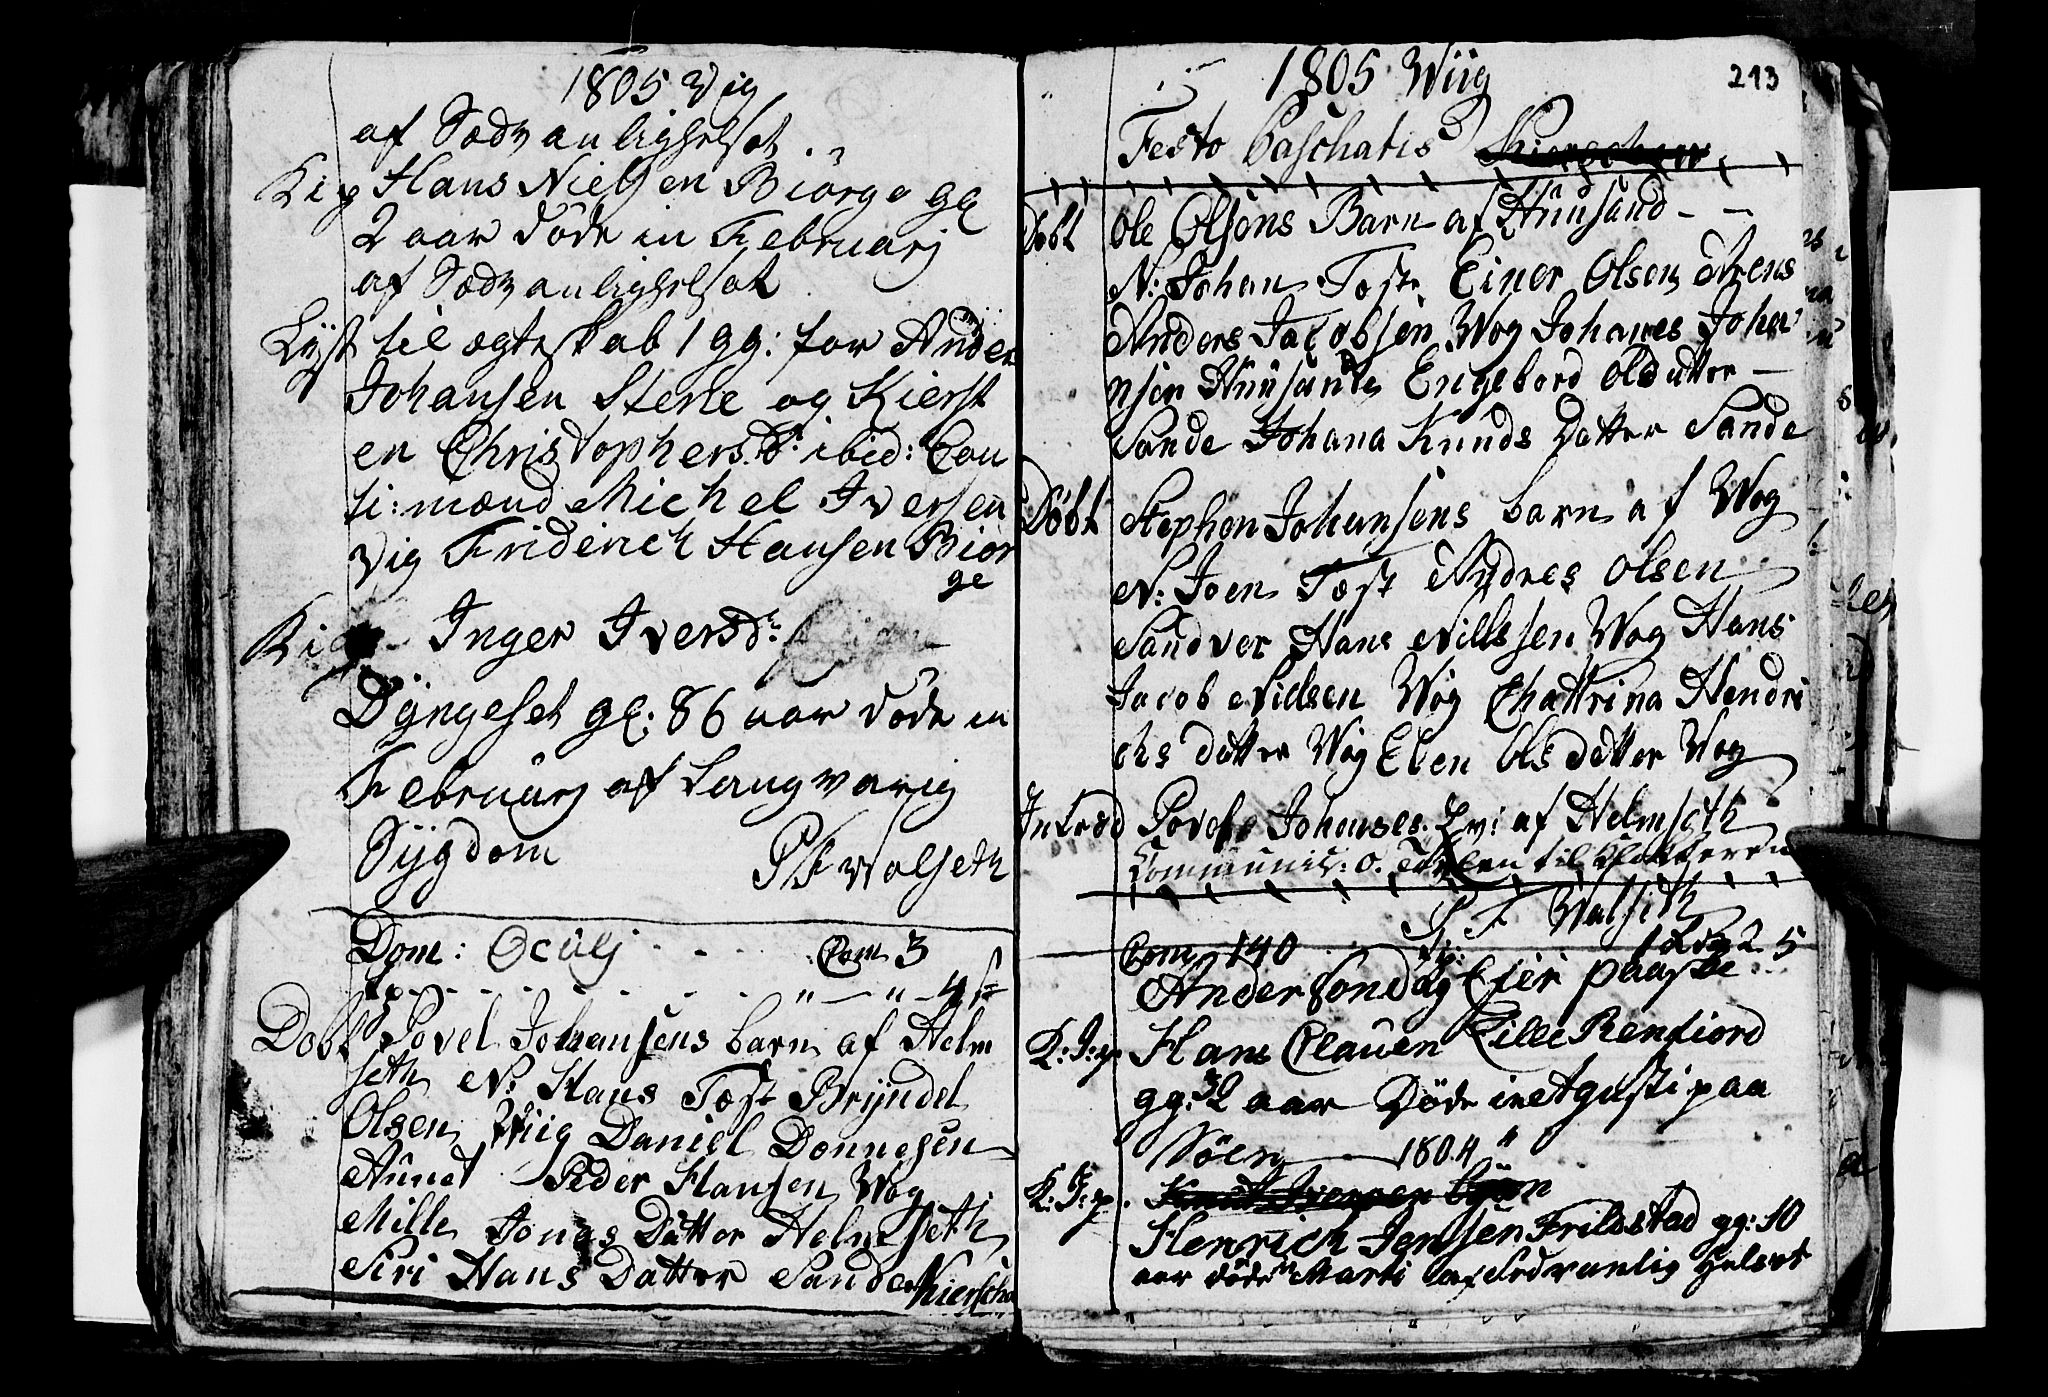 1805 Vig
af Sædvanlighelsot
Kip Hans Nielsen Biörge gl
2 aar döde in Februarj
af Sædvanlighelsot
Lÿst til ægteskab 1 gg: for Anders
Johansen Stene og Kierst
en Christophersd: ibid: Cau
ti: mænd Michel Iversen
Vig Friderich Hansen Biör
ge
Inger Iversd:
Dÿngeset gl: 86 aar döde in
Februarj af Langvarig
Sÿgdom P F Walseth
Dom: Oculj Com 3
Döbt Povel Johansens barn af Helm
seth N: Hans Test Brÿndel
Olsen Wiig Daniel Donnesen
Aunet Peder Hansen Wog
Mille Jonas Datter Helmseth
Siri Hans Datter Sande
1805 Wiig 213
Festo Paschatis
Döbt Ole Olsöns Barn af Huusand
N: Johan Test Einer Olsen Arens
Anders Jacobsen Wog Johanes Johan
nsen Huusand Engebord Olsdatter
Sande Johana Knuds Datter Sande
Döbt Stephen Johansens barn af Wog
N: Joen Test Andres Olsen
Sandver Hans Nillssen Wog Hans
Jacob Nillsen Wög Chattrina Hendri
chs datter Wög Elen Olsdatter Wog
Introd Povel Johanses af Helmseth
Communic: O. Tavlen til Klokkeren
P F Walseth
Com 140
Ander Söndag Efter paaske
K: I: p Hans Clauen Lille Refsiord
gg: 32 aar Döde in Agusti paa
Söen 1804
K: I: p.
Henrich Jensen Frildstad gg: 10
aar döde in Marti af Sedvanlig Helsot